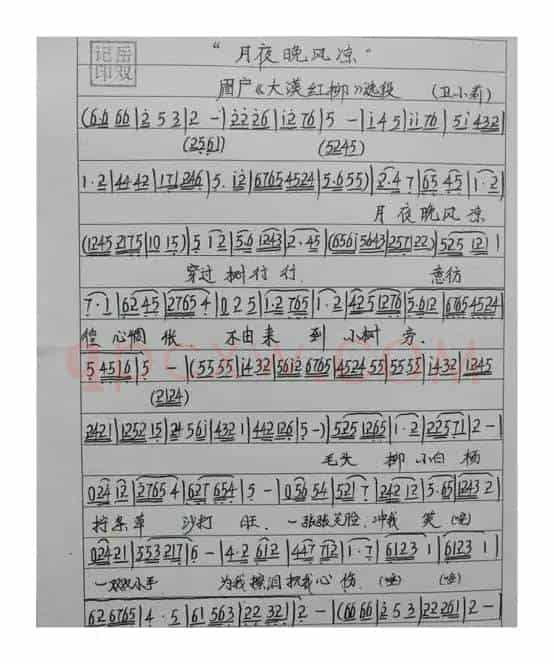 "月夜晚风凉"
眉户《大漠红柳》选段 (卫小莉)
(6̇6 66|2 5 3|2 -|2̇2̇ 2̇6|i2 76|5 -|i 4 5|ii 76|5i 432|
(2561) (5245)
1·2|44 42|171 246|5. i2|6765 4524|5·6 55)|2·4 7|65 45|1·2|
月 夜 晚 风 凉
(1245 2175|10 15)|5 12|56 1243|2·45|(656i 5643|257 22)|525 121|
穿过 树行 行. 意彷
7·1|6245|2765 4|0 2 5|1·2 765|1·2|425 1276|5·612|6765 4524|
心惆 怅 不由来 到 小树 旁.
5 4516|5 -|(55 55|i4 32|5612 6765|4524 55|55 55|i4 32|1245
(2124)
2421|1252 15|24 56i|432 1|442 126|5 -)|525 1265|1·2|22571|2 -|
毛头 柳 小白 杨
024 12|2765 4|627 654|5 -|056 54|521 7|242 12|5·65|1243 2|
沙打 旺. 一张张笑脸 冲我 笑
02421|553 217|6 -|4·2 612|447 712|1·7|6123 1|6123 1|
一双双小手 为我擦泪抚我心 伤.
62 6765|4 · 5|61 563|22 321|2 -|(66 66|2 5 3|22 261|2 -|